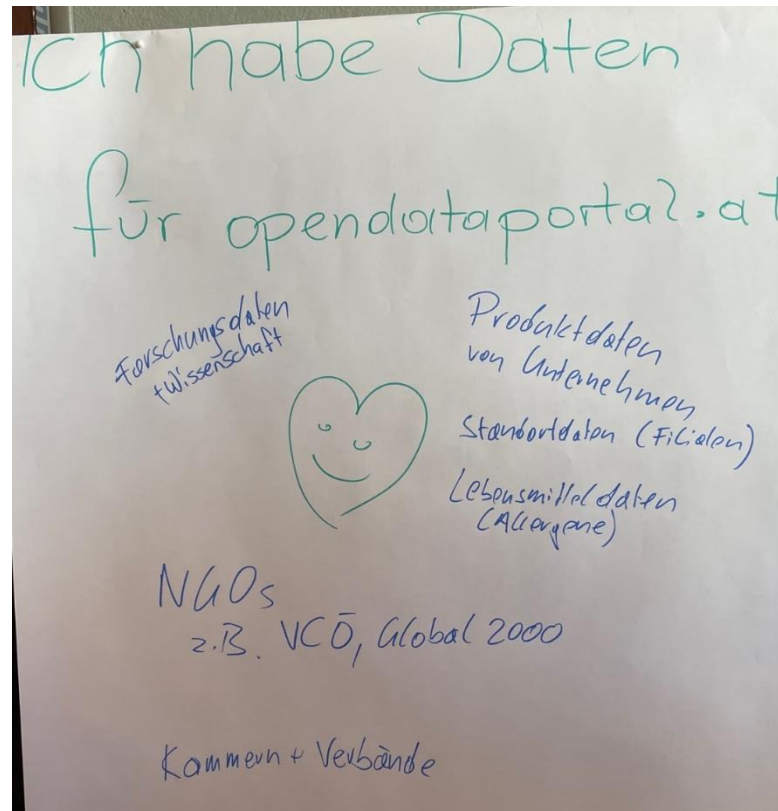 Ich habe Daten
für opendataportal.at
Forschungsdaten
+Wissenschaft
Produktdaten
von Unternehmen
Standortdaten (Filialen)
Lebensmitteldaten
(Allergene)
NGOs
z.B. VCÖ, Global 2000
Kammern + Verbände